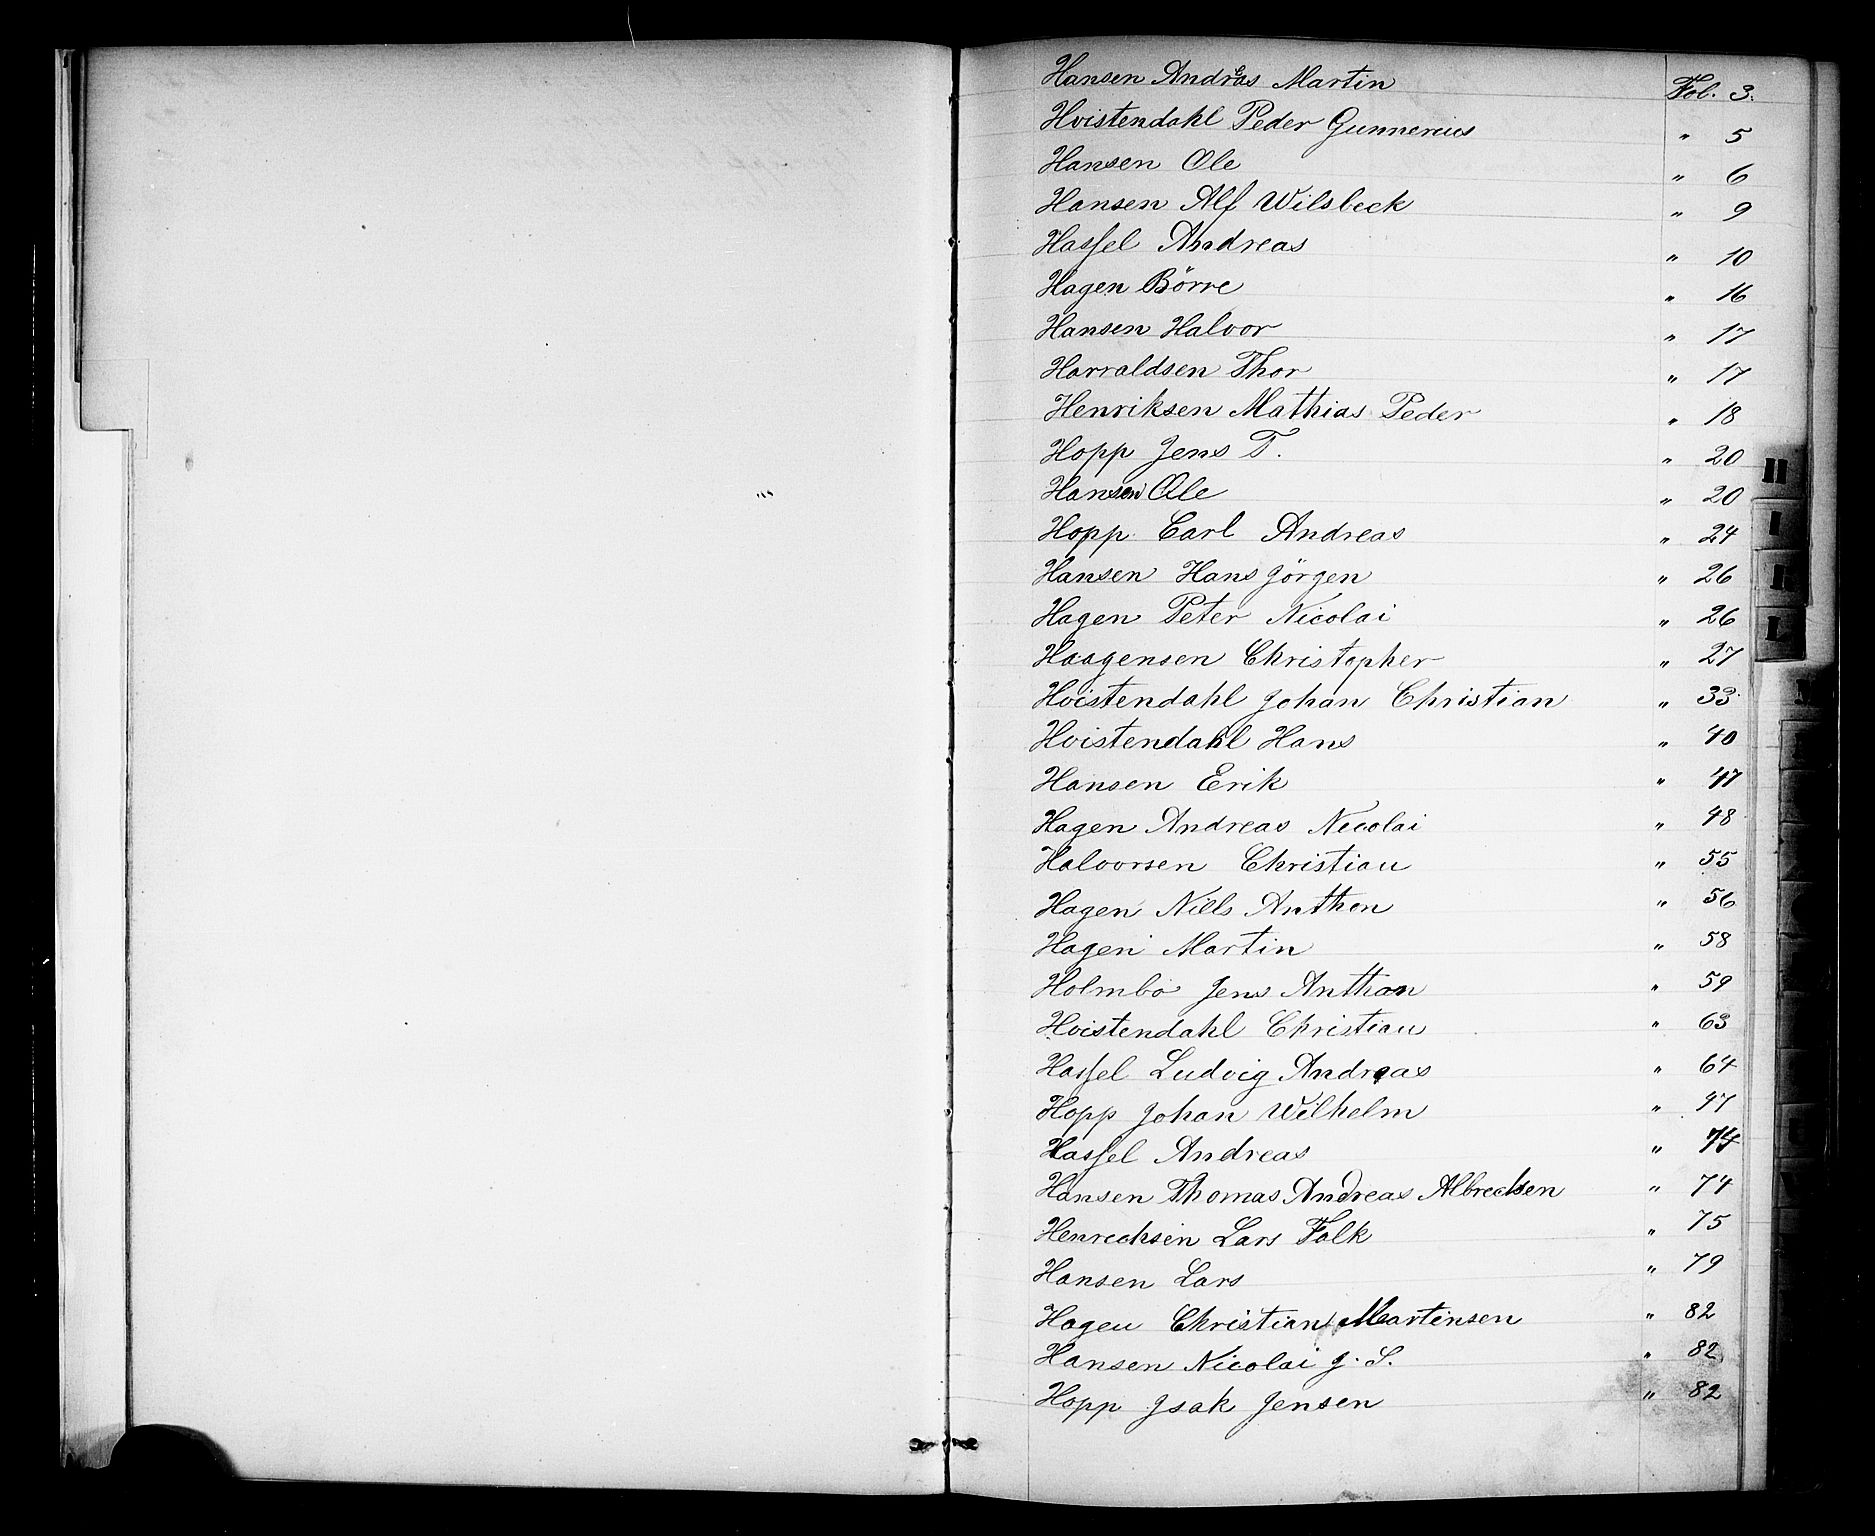 Hansen Andreas Martin Fol. 3.
Hvistendahl Peder Gunnerius " 5
Hansen Ole " 6
Hansen Alf Wilsbeck " 9
Hassel Andreas " 10
Hagen Börre " 16
Hansen Halvor " 17
Harraldsen Thor " 17
Henriksen Mathias Peder " 18
Hopp Jens T. " 20
Hansen Ole " 20
Hopp Carl Andreas " 24
Hansen Hans Jörgen " 26
Hagen Peter Nicolai " 26
Haagensen Christopher " 27
Hvistendahl Johan Christian " 33
Hvistendahl Hans " 40
Hansen Erik " 47
Hagen Andreas Nicolai " 48
Halvorsen Christian " 55
Hagen Niels Anthon " 56
Hagen Martin " 58
Holmbo Jens Anthon " 59
Hvistendahl Christian " 63
Hassel Ludvig Andreas " 64
Hopp Johan Wilhelm " 97
Hassel Andreas " 74
Hansen Thomas Andreas Albrechtsen " 74
Henrechsen Lars Falk " 75
Hansen Lars " 79
Hagen Christian Martinsen " 82
Hansen Nicolai J. S. " 82
Hopp Isak Jensen " 82
H
I
K
L